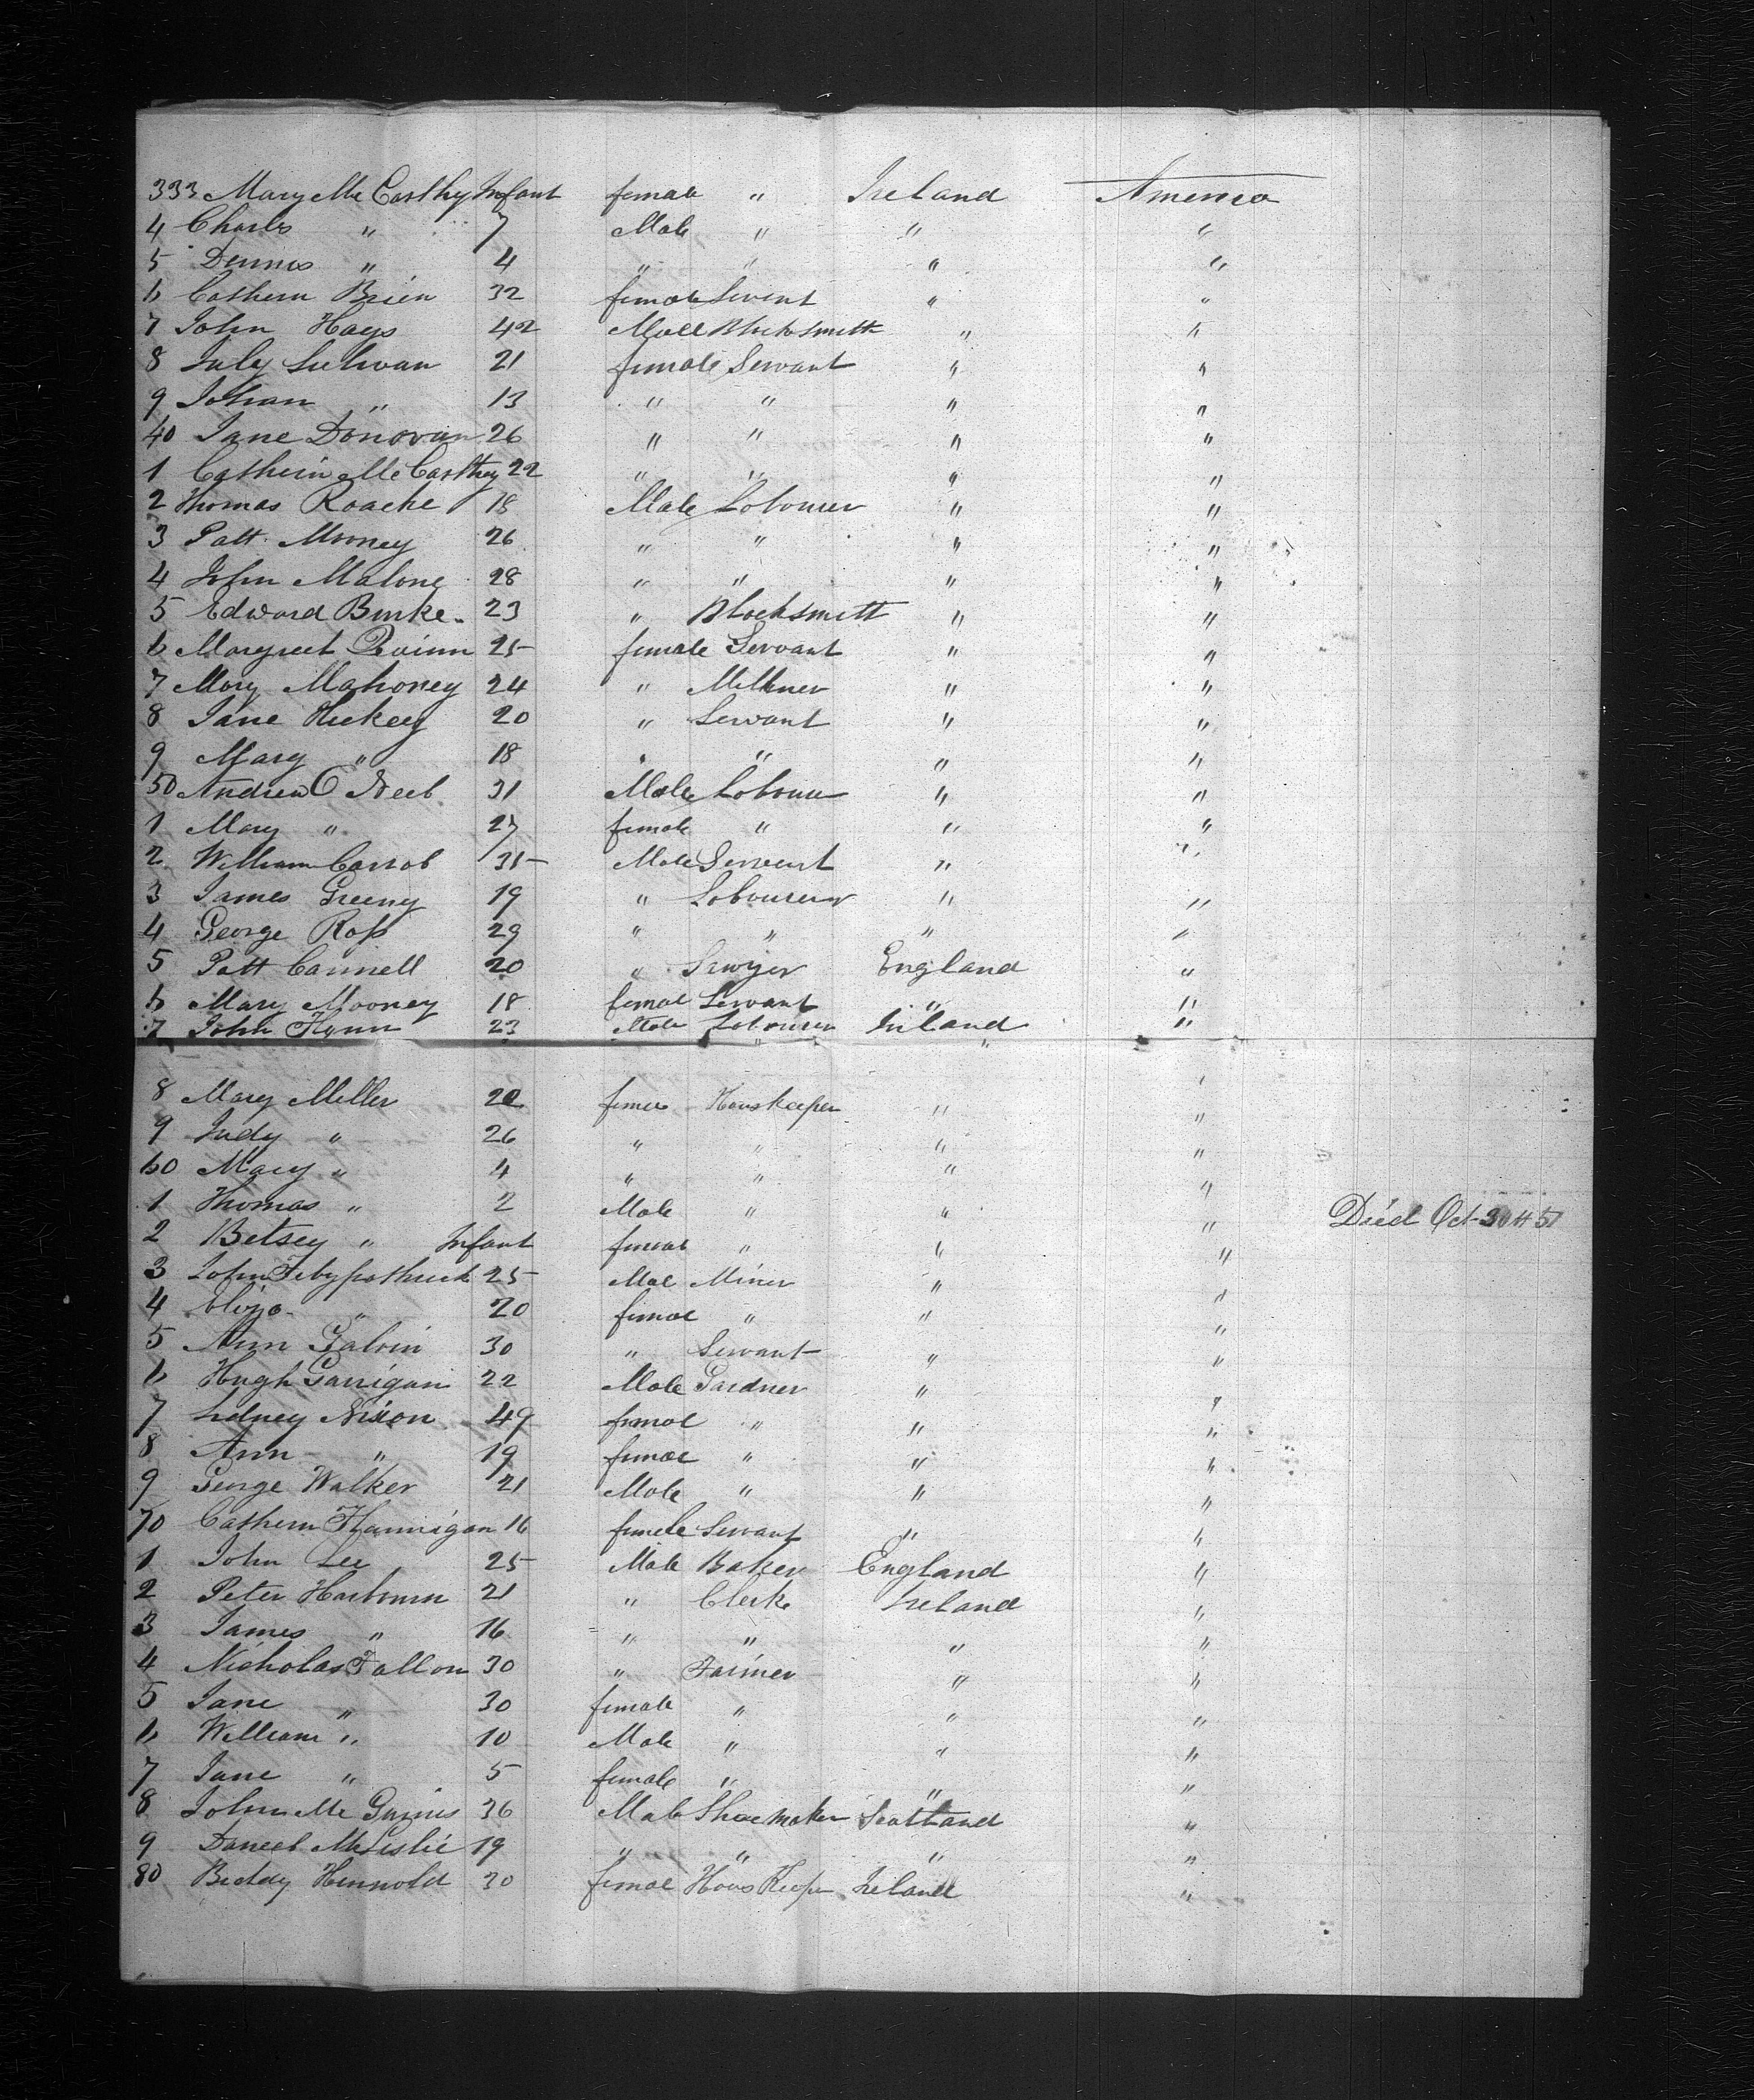 333 Mary Mc Carthy Infant female " Ireland America
4 Charls " 7 Male " " "
5 Dennis " 4 " " " "
6 Cathern Brien 32 female Servent " "
7 John Hays 42 Male Blacksmith " "
8 July Sulivan 21 female Servant " "
9 Johan " 13 " " " "
40 Jane Donovan 26 " " " "
1 Cathern Mc Carthy 22 " " " "
2 Thomas Roache 18 Male Labourer " "
3 Patt Mooney 26 " " " "
4 John Malone 28 " " " "
5 Edward Burke 23 " Blacksmith " "
6 Margreet Quinn 25 female Servant " "
7 Mary Mahoney 24 " Millener " "
8 Jane Hickey 20 " Servant " "
9 Mary " 18 " " " "
50 Andrew O Neel 31 Male Labourer " "
1 Mary " 27 female " " "
2 William Carrol 35 Male Servent " "
3 James Greeny 19 " Labourer " "
4 George Ross 29 " " " "
5 Patt Cannell 20 " Sawyer England "
6 Mary Mooney 18 femal Servant " "
7 John Flynn 23 Male Labourer Ireland "
8 Mary Miller 22 femal Houskeeper " "
9 Judy " 26 " " " "
60 Mary " 4 " " " "
1 Thomas " 2 Male " " " Died Oct 30th 51
2 Betsey " Infant femal " " "
3 John Fitzpathrick 25 Mal Miner " "
4 Eliza " 20 femal " " "
5 Ann Galvin 30 " Servant " "
6 Hugh Garrigan 22 Male Gardner " "
7 Sidney Nixon 49 femal " " "
8 Ann " 19 femal " " "
9 George Walker 21 Male " " "
70 Cathern Flannigan 16 femele Servant " "
1 John Lee 25 Male Baker England "
2 Peter Harbourn 21 " Clerk Ireland "
3 James " 16 " " " "
4 Nicholas Fallon 30 " Farmer " "
5 Jane " 30 female " " "
6 William " 10 Male " " "
7 Jane " 5 female " " "
8 John Mc Ginnis 36 Male Shoemaker Scotland "
9 Daneel McLeslie 19 " " " "
80 Biddy Hennold 30 femal Hous Keeper Ireland "